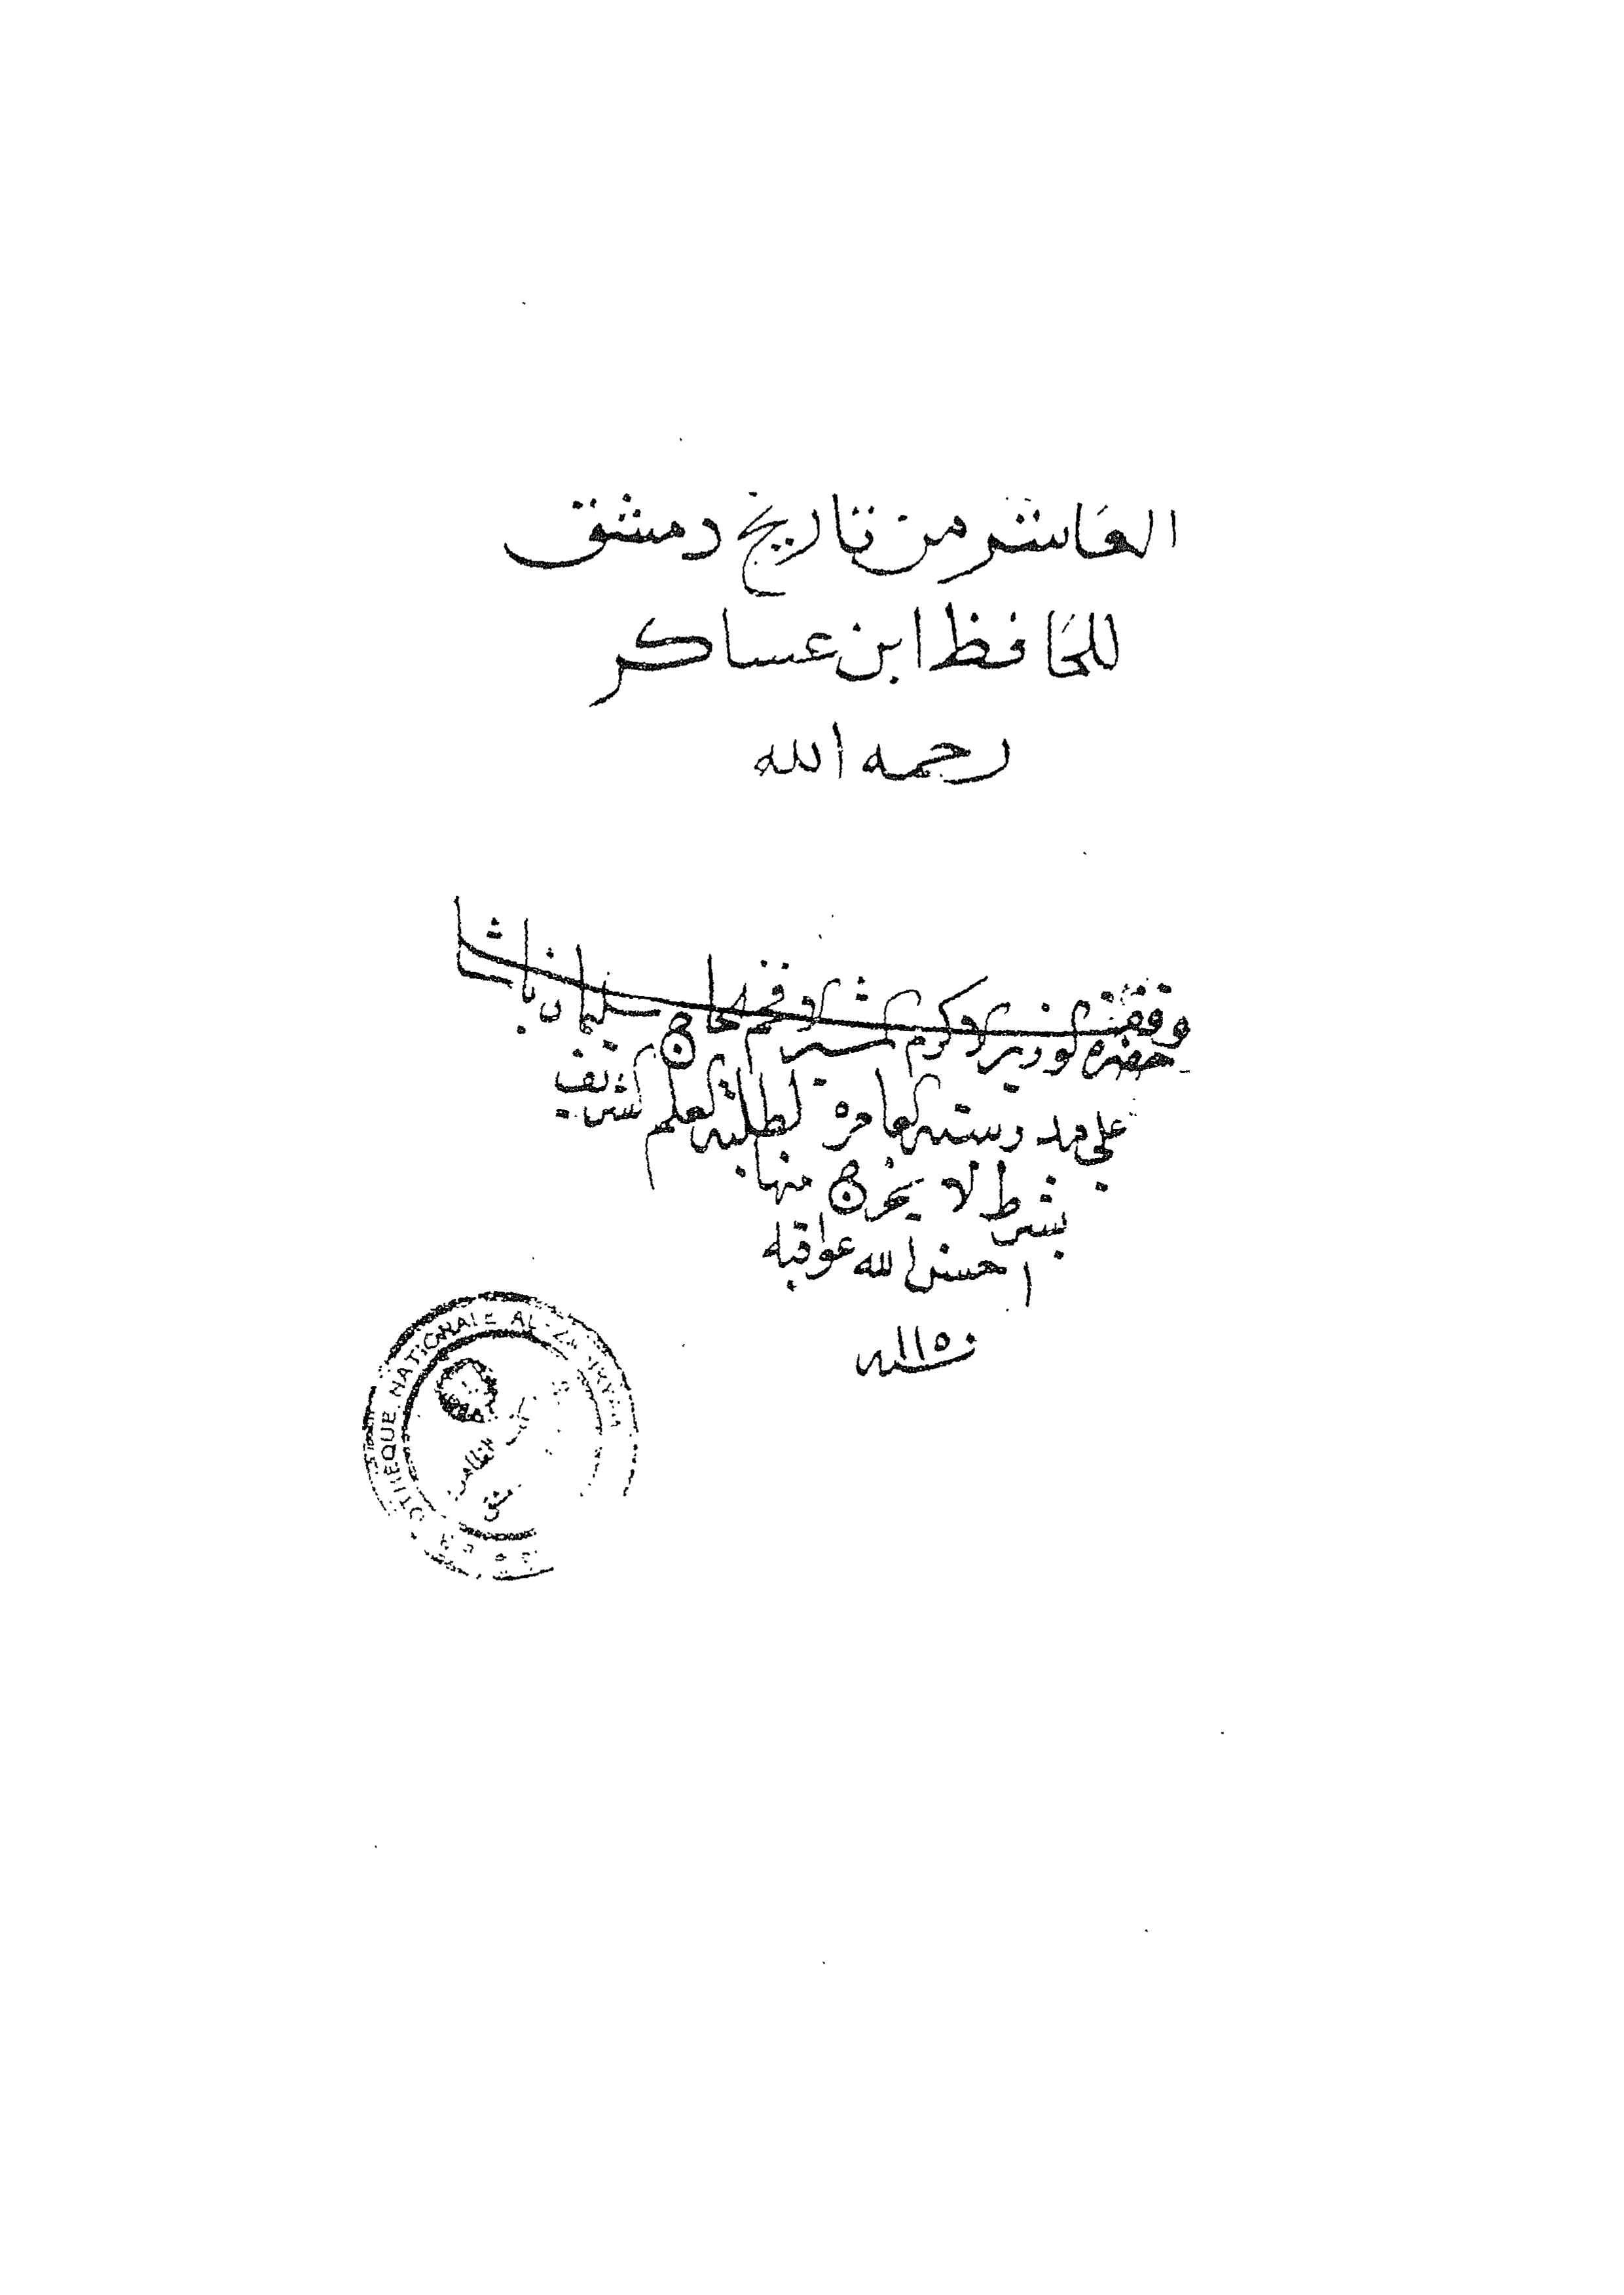 العاشر من تاريخ دمشق
للحافظ ابن عساكر
رحمه الله
وقف
حضرة الوزير الاكرم المشير الافخم الحاج سليمان باشا
على مدرسته العامره لطلبة العلم الشريف
بشرط لا يخرج منها
احسن الله عواقبه
سنه ١١٥٠
NATIONALE AL-ZAHIRYAH